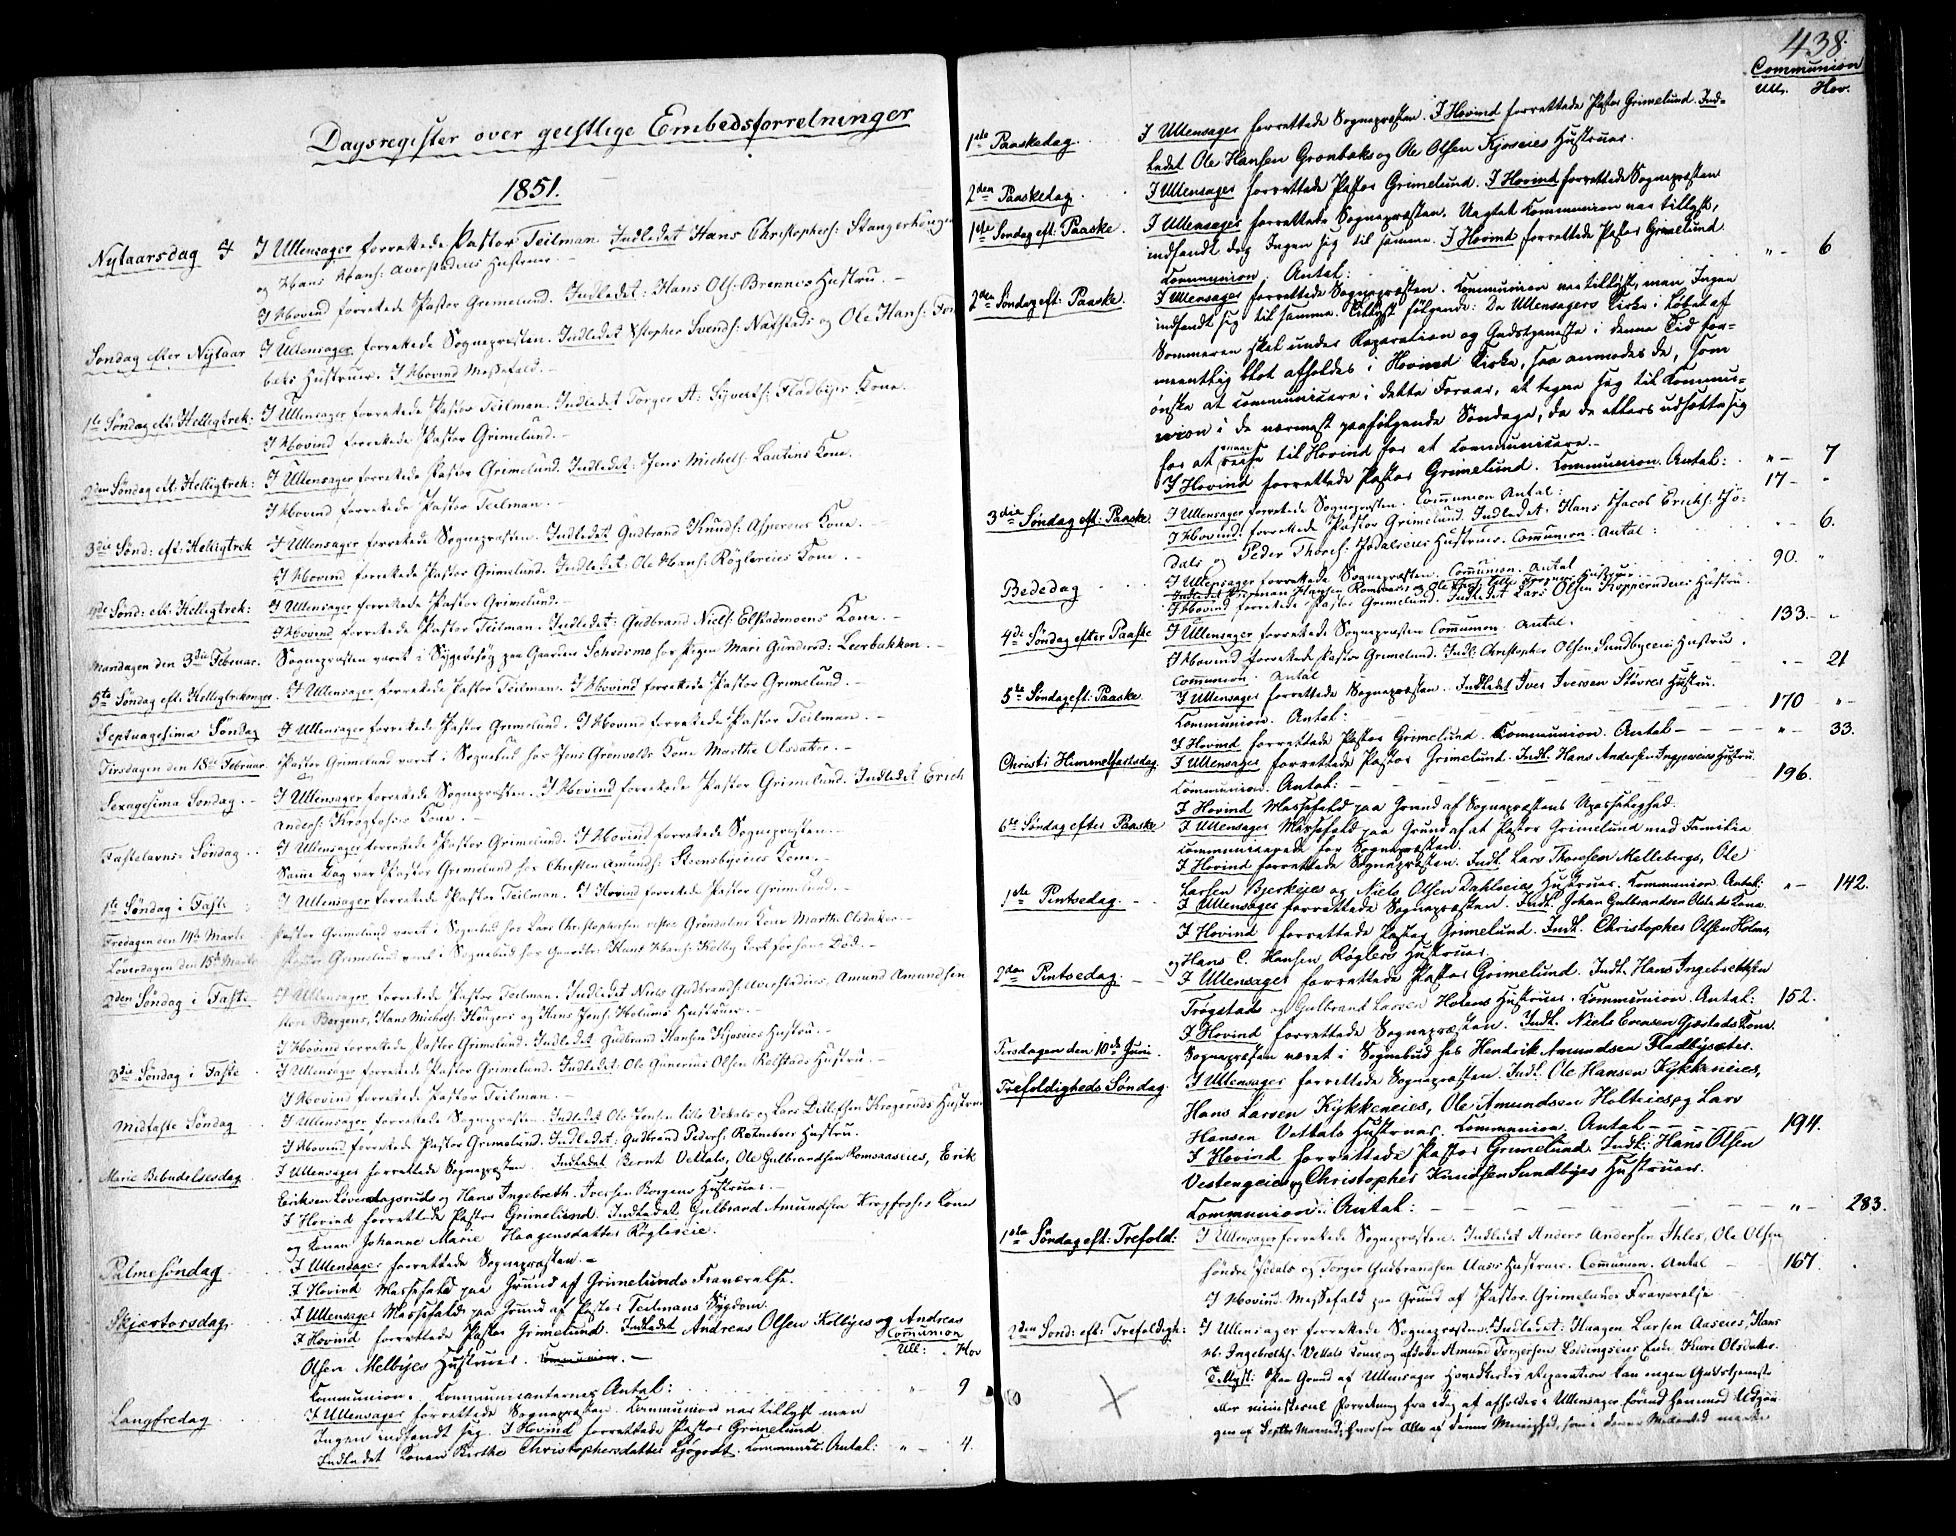 Dagsregister over geistlige Embedsforretninger
1851.
Nytaarsdag I Ullensager forrettede Pastor Teilman. Indledet Hans Christophers:
og Hans Hans: Hustruer. –
I Hovind forrettede Pastor Grimelund. Indledet: Hans Ols: Brennes Hustru. –
Søndag efter Nytaar I Ullensager forrettede Sognepræsten. Indledet Svends: Nafstads og Ole Hans:
Hustruer. I Hovind Messefald. –
1ste Søndag eft: Helligtrek: I Ullensager forrettede Pastor Teilman. Indledet Torger A: Syverts: Fladbyes Kone.
I Hovind forrettede Pastor Grimelund. –
2den Søndag eft: Helligtrek: I Ullensager forrettede Pastor Grimelund. Indledet: Jens Michels: Kone.
I Hovind forrettede Pastor Teilman. –
3die Sønd: eft: Helligtrek I Ullensager forrettede Sognepræsten. Indledet Gudbrand Knuds: Kone. –
I Hovind forrettede Pastor Grimelund. Indledet: Ole Hans: Røglereies Kone. –
4de Sønd: eft: Helligtrek: I Ullensager forrettede Pastor Grimelund. –
I Hovind forrettede Pastor Teilman. Indledet: Gudbrand Niels: Elstadmoens Kone. –
Mandagen den 3die Februar. Sognepræsten været i Sygebesøg paa Gaarden for Pigen Mari Gundersd: Leerbakken. –
5te Søndag eft: Helligtrekonger. I Ullensager forrettede Pastor Teilman. I Hovind forrettede Pastor Grimelund. –
Septuagesima Søndag I Ullensager forrettede Pastor Grimelund. I Hovind forrettede Pastor Teilman. –
Tirsdagen den 18de Februar. Pastor Grimelund været i Sognebud hos Jens Grønvolds Kone Marthe Olsdatter. –
Sexagesima Søndag. – I Ullensager forrettede Sognepræsten. I Hovind forrettede Pastor Grimelund. Indledet Erich
Anders: Krogfosses Kone. –
Fastelavns-Søndag I Ullensager forrettede Pastor Grimelund. I Hovind forrettede Sognepræsten. –
Samme Dag var Pastor Grimelund hos Christen Amunds: Steensbyeies Kone. –
1ste Søndag i Faste I Ullensager forrettede Pastor Teilman. I Hovind forrettede Pastor Grimelund. –
Fredagen den 14de Marts Pastor Grimelund været i Sognebud hos Lars Christophersen Kone Marthe Olsdatter –
Løverdagen den 15de Marts Pastor Grimelund været i Sognebud hos Hans Hans: Død. –
2den Søndag i Faste I Ullensager forrettede Pastor Teilman. Indledet Niels Gudbrands: Amund Amundsen
Borgens, Hans Michels: Haugers og Hans Jens: Holums Hustruer. –
I Hovind forrettede Pastor Grimelund. Indledet Gudbrand Hansen Kjoseies Hustru. –
3die Søndag i Faste I Ullensager forrettede Pastor Grimelund. Indledet: Ole Gunerius Olsen Hustru. –
I Hovind forrettede Pastor Teilman. –
Midfaste Søndag I Ullensager forrettede Sognepræsten. Indledet Ole Jensen lille Vetals og Lars Krogeruds Hustruer
I Hovind forrettede Pastor Grimelund. Indledet: Gudbrand Peders: Hustru.
Marie Bebudelsesdag I Ullensager forrettede Sognepræsten. Indledet Bernt Vettals, Ole Gulbrandsen Romsaaseies, Erik
Eriksen og Hans Ingebreth. Iversen Borgens Hustruer. –
I Hovind forrettede Pastor Grimelund. Indledet Gulbrand Amundsen Krogfosses Kone
og Konen Johanne Marie Haagensdatter Røglereie.
Palmesøndag I Ullensager forrettede Sognepræsten. –
I Hovind Messefald paa Grund af Grimelunds Fraværelse.
Skjærtorsdag I Ullensager Messefald paa Grund af Pastor Teilmans Sygdom.
I Hovind forrettede Pastor Grimelund. Indledet Andreas Olsen Kolbyes og Andreas
Olsen Melbyes Hustruer. –
Comunion
Ull: Hov
Kommunion. Kommunicanternes Antal: „ 9
Langfredag I Ullensager forrettede Sognepræsten. Kommunion var tillyst men
Ingen indfandt sig. I Hovind forrettede Pastor Grimelund
Indledet Konen Birthe Christophersdatter. Kommunic. Antal: „ – 4.
438.
Communion
Ull. Hov.
1ste Paaskedag. I Ullensager forrettede Sognepræsten. I Hovind forrettede Pastor Grimelund. Ind-
ledet Ole Hansen Grønbæks og Ole Olsen Kjoseies Hustruer.
2den Paaskedag. I Ullensager forrettede Pastor Grimelund. I Hovind forrettede Sognepræsten
1ste Søndag eft: Paaske. I Ullensager forrettede Sognepræsten. Uagtet Kommunion var tillyst,
indfandt dog Ingen sig til samme. I Hovind forrettede Pastor Grimelund
Kommunion. Antal: „ – 6
2den Søndag eft: Paaske. I Ullensager forrettede Sognepræsten. Kommunion var tillyst, men Ingen
indfandt sig til samme. Tillyst følgende: Da Ullensagers Kirke i Løbet af
Sommeren skal under Reparation og Gudstjeneste i denne Tid for-
meentlig blot afholdes i Hovind Kirke, saa anmodes de, som
ønske at communicere i dette Foraar, at tegne sig til Kommu-
nion i de nærmest paafølgende Søndage, da de ellers udsætte sig
for at reise til Hovind for at kommunicere. –
I Hovind forrettede Pastor Grimelund. Kommunion. Antal: „ – 7
3die Søndag eft: Paaske. I Ullensager forrettede Sognepræsten. Communion Antal: 17 – „
I Hovind forrettede Pastor Grimelund. Indledet: Hans Jacob Erichs: Jo-
dals og Peder Thores: Jodalseies Hustruer. Comunion. Antal: „ 6.
Bededag I Ullensager forrettede Sognepræsten. Comunion. Antal 90. „
I Hovind forrettede Pastor Grimelund. Indledet Lars Olsen Kopperudeies Hustru.
4de Søndag efter Paaske I Ullensager forrettede Sognepræsten Comunion. Antal. 133. – „
I Hovind forrettede Pastor Grimelund. Indl: Christopher Olsen Sundbyeeies Hustru.
Comunion. Antal „ – 21
5te Søndag eft: Paaske I Ullensager forrettede Sognepræsten. Indledet Iver Iversen Hustru.
Kommunion. Antal: 170 – „ –
I Hovind forrettede Pastor Grimelund. Kommunion. Antal – „ – 33.
Christi Himmelfartsdag I Ullensager forrettede Pastor Grimelund. Indl. Hans Andersen Hustru.
Kommunion. Antal: – 196.
I Hovind Messefald paa Grund af Sognepræstens Upasselighed.
6te Søndag efter Paaske I Ullensager Messefald paa Grund af at Pastor Grimelund med Familie
kommunicerede for Sognepræsten.
I Hovind forrettede Sognepræsten. Indl. Lars Thoresen Mellebergs, Ole
Larsen Bjerkeies og Niels Olsen Dahlseies Hustruer. Kommunion. Antal: „ – 142.
1ste Pintsedag. I Ullensager forrettede Sognepræsten. Indl. Johan Gulbrandsen Kone.
I Hovind forrettede Pastor Grimelund. Indl. Christopher Olsen Holms,
og Hans C. Hansen Røglers Hustruer.
2den Pintsedag. I Ullensager forrettede Pastor Grimelund. Indl. Hans Ingebrethsen
Trøgstads og Gulbrand Larsen Holens Hustruer. Kommunion. Antal: 152.
I Hovind forrettede Sognepræsten. Indl. Niels Evensen Gjestads Kone.
Tirsdagen den 10de Juni. Sognepræsten været i Sognebud hos Hendrik Amundsen Fladbysæter.
Trefoldigheds Søndag. I Ullensager forrettede Sognepræsten. Indl. Ole Hansen Kykkeneies,
Hans Larsen Kykkeneies, Ole Amundsen Holteies og Lars
Hansen Vettals Hustruer. Kommunion. Antal – 194.
I Hovind forrettede Pastor Grimelund. Indl.: Hans Olsen
Vestengeies og Christopher Knudsen Sundbyes Hustruer.
Kommunion. Antal: „ – 283.
1ste Søndag eft: Trefold: I Ullensager forrettede Sognepræsten. Indledet Anders Andersen Ihles, Ole Olsen
søndre Jodals og Torger Gudbrandsen Aases Hustruer. Comunion. Antal 167.
I Hovind Messefald paa Grund af Pastor Grimelunds Fraværelse
2den Sønd: eft: Trefoldigh: I Ullensager forrettede Sognepræsten. Indledet: Haagen Larsen Aaseies, Hans
Ingebreths: Vettals Koner og afdøde Amund Torgersen Enke Kari Olsdatter.
Tillyst: Paa Grund af Ullensager Hovedkirkes Reparation kan ingen Gudstjeneste
eller ministeriel Forretning fra idag af afholdes i Ullensager førend henimod Udgan-
gen af Septbr Maaned; hvorfor Alle af denne Menighed, som i denne Mellemtid